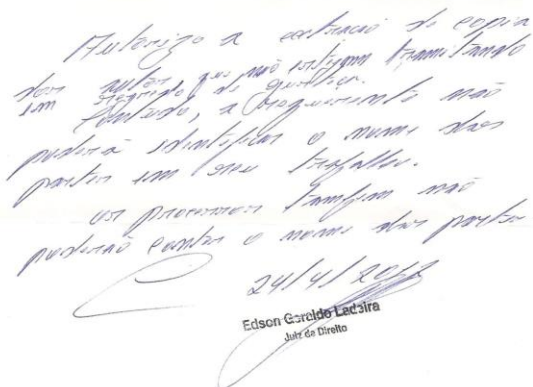 Autorizo a extração de copia
dos autos, que não estejam tramitando
em segredo de justiça.
Contudo, a requerente não
poderá identificar o nome das
partes em seu trabalho.
os processos tambem não
poderão conter o nome das partes
24/4/2012
Edson Geraldo Ladeira
Juiz de Direito